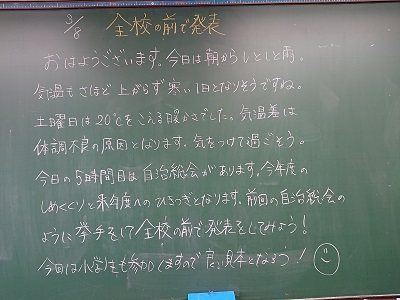 3/8 全校の前で発表
おはようございます。今日は朝からしとしと雨。
気温もさほど上がらず寒い1日となりそうですね。
土曜日は20℃をこえる暖かさでした。気温差は
体調不良の原因となります。気をつけて過ごそう。
今日の5時間目は自治総会があります。今年度の
しめくくりと来年度へのひきつぎとなります。前回の自治総会の
ように挙手をして全校の前で発表をしてみよう!
今回は小学生も参加しますので良い見本となろう!